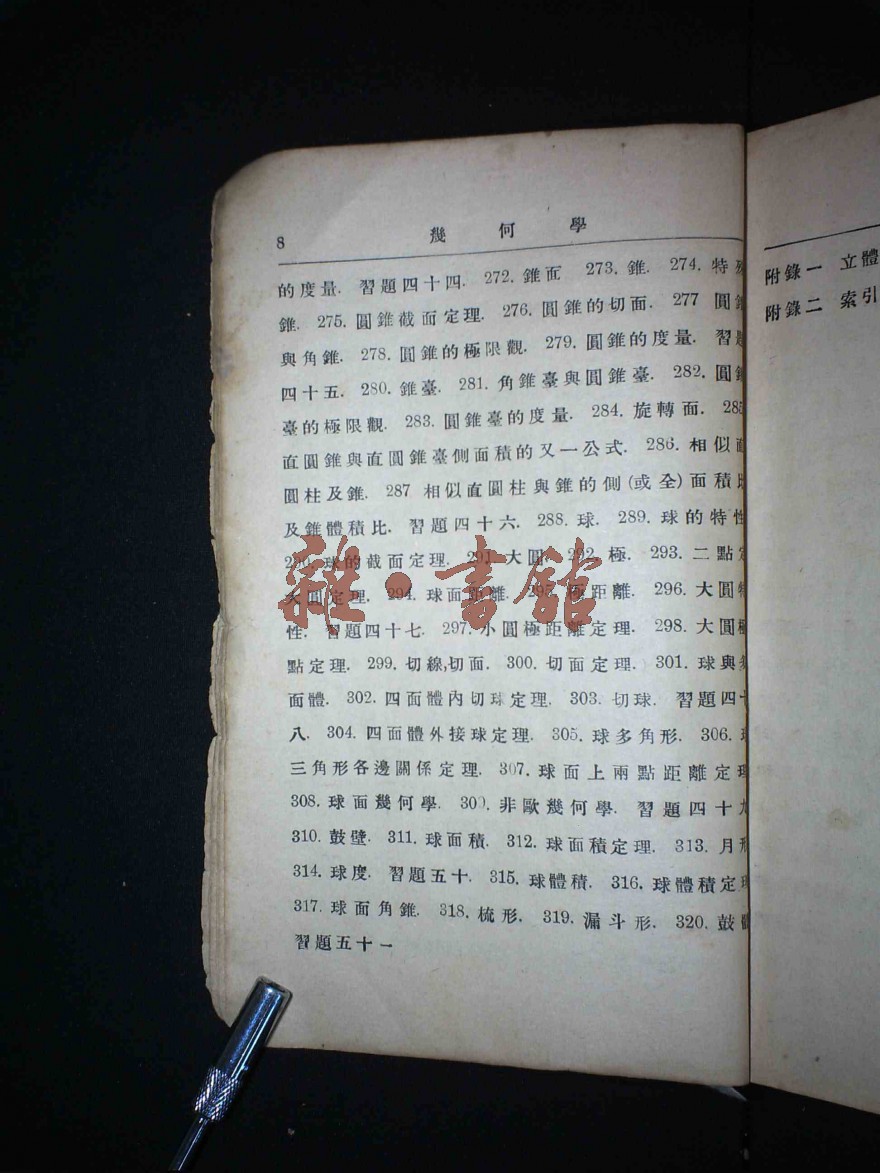 8 幾何學
的度量. 習題四十四. 272. 錐面 273. 錐. 274. 特殊
錐. 275. 圓錐截面定理. 276. 圓錐的切面. 277 圓錐
與角錐. 278. 圓錐的極限觀. 279. 圓錐的度量. 習題
四十五. 280. 錐臺. 281. 角錐臺與圓錐臺. 282. 圓錐
臺的極限觀. 283. 圓錐臺的度量. 284. 旋轉面. 285
直圓錐與直圓錐臺側面積的又一公式. 286. 相似直
圓柱及錐. 287 相似直圓柱與錐的側(或全)面積比
及錐體積比. 習題四十六. 288. 球. 289. 球的特性
290. 球的截面定理. 291. 大圓. 292. 極. 293. 二點定
大圓定理. 294. 球面距離. 295. 極距離. 296. 大圓特
性. 習題四十七. 297. 小圓極距離定理. 298. 大圓極
點定理. 299. 切線,切面. 300. 切面定理. 301. 球與多
面體. 302. 四面體內切球定理. 303. 切球. 習題四十
八. 304. 四面體外接球定理. 305. 球多角形. 306.
三角形各邊關係定理. 307. 球面上兩點距離定理
308. 球面幾何學. 309. 非歐幾何學. 習題四十九
310. 鼓壁. 311. 球面積. 312. 球面積定理. 313. 月形
314. 球度. 習題五十. 315. 球體積. 316. 球體積定理
317. 球面角錐. 318. 梳形. 319. 漏斗形. 320. 鼓體
習題五十一
附錄一 立體
附錄二 索引
雜·書館